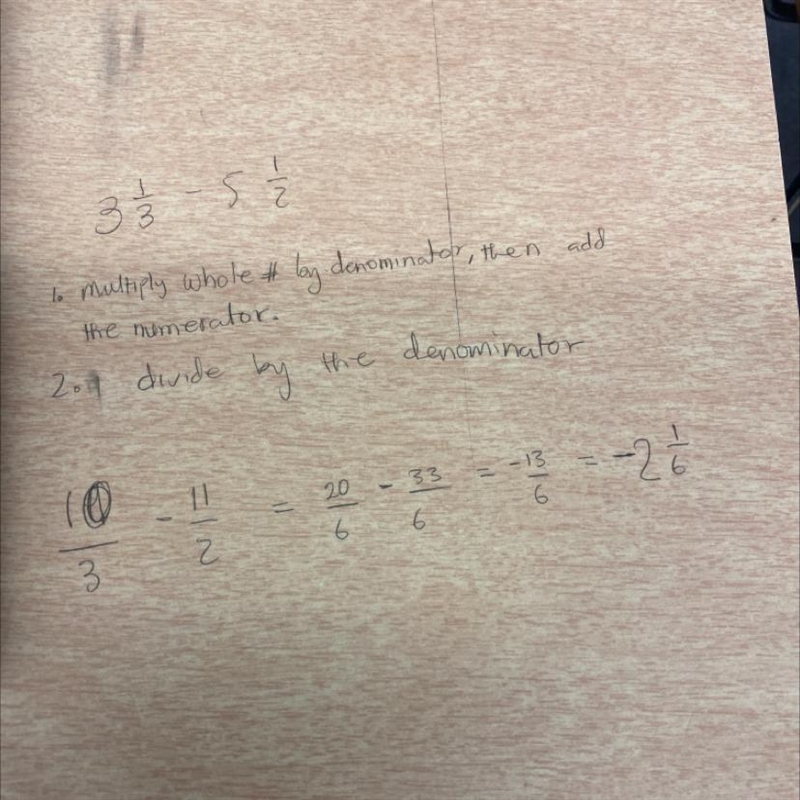 3 1/3 - 5 1/2
1. multiply whole # by denominator, then add
the numerator.
2. divide by the denominator
10/3 - 11/2 = 20/6 - 33/6 = -13/6 = -2 1/6